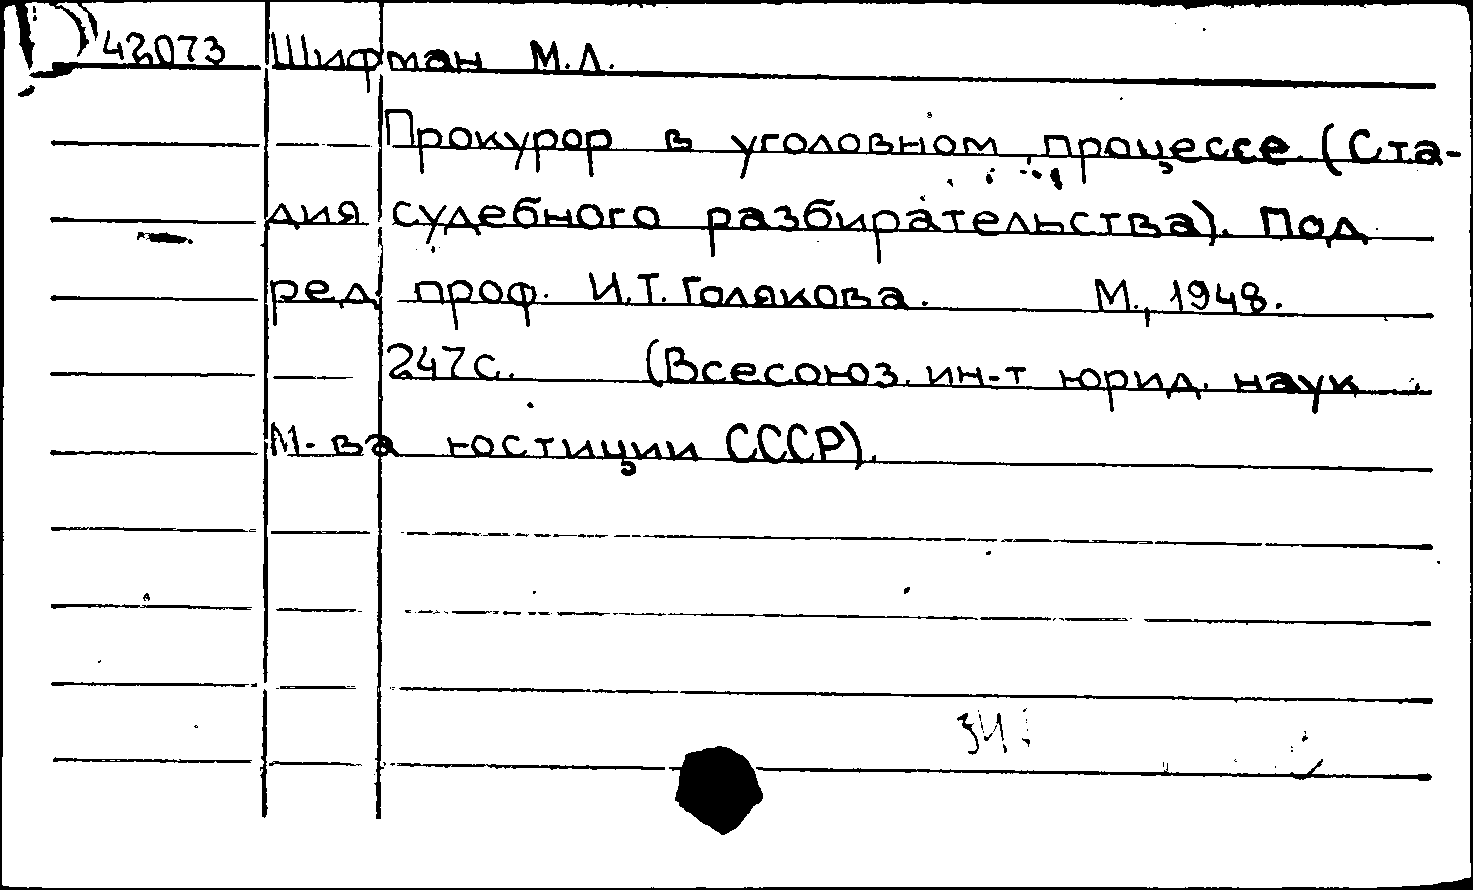 42073 Шифман М.Л.
Прокурор в уголовном процессе. (Ста-
дия судебного разбирательства). Под
ред. проф. И.Т. Голякова. М., 1948.
247 с. (Всесоюз. ин-т юрид. наук
М-ва юстиции СССР).